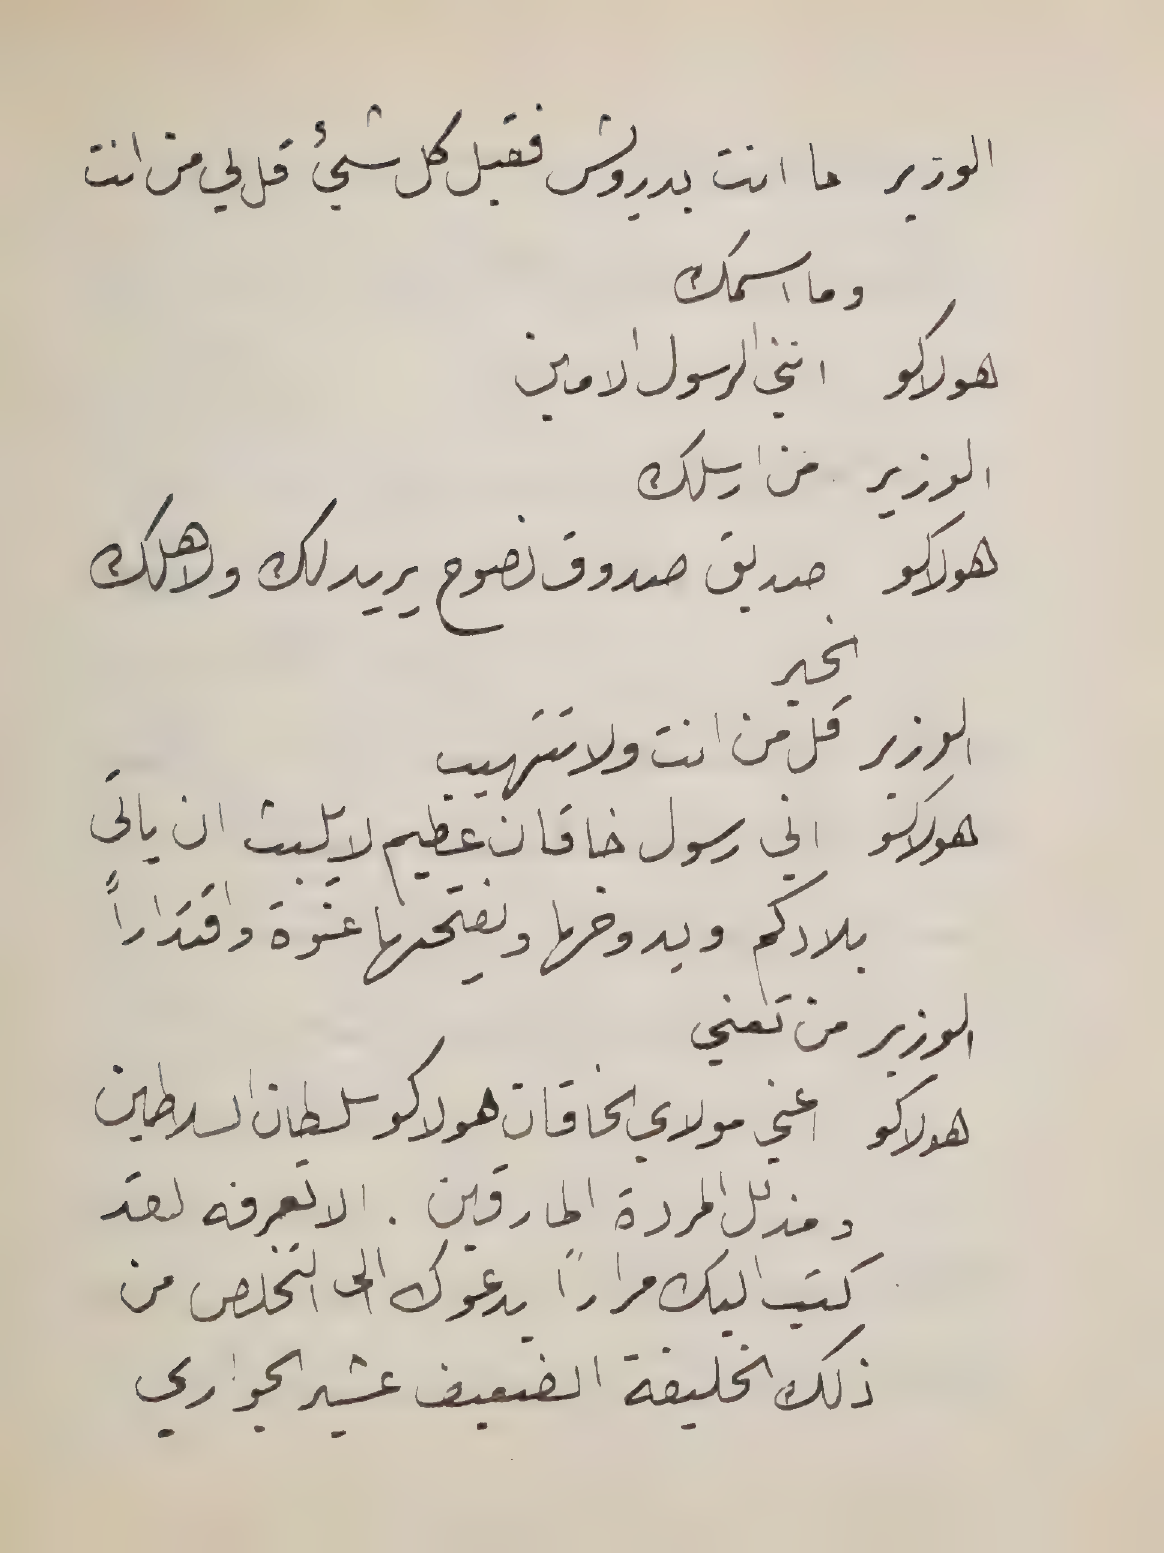 الوزير ما انت بدرويش فقبل كل شيئ قل لي من انت
وما اسمك
هولاكو انني الرسول الامين
الوزير من ارسلك
هولاكو صديق صدوق نصوح يريد لك ولاهلك
الخير
الوزير قل من انت ولا تتهيب
هولاكو اني رسول خاقان عظيم لا يلبث ان ياتي
بلادكم ويدوخها ويفتحها عنوة واقتداراً
الوزير من تعني
هولاكو اعني مولاي الخاقان هولاكو سلطان السلاطين
ومذلل المردة المارقين . الا تعرفه لقد
كتب اليك مراراً يدعوك الى التخلص من
ذلك الخليفة الضعيف عشير الجواري